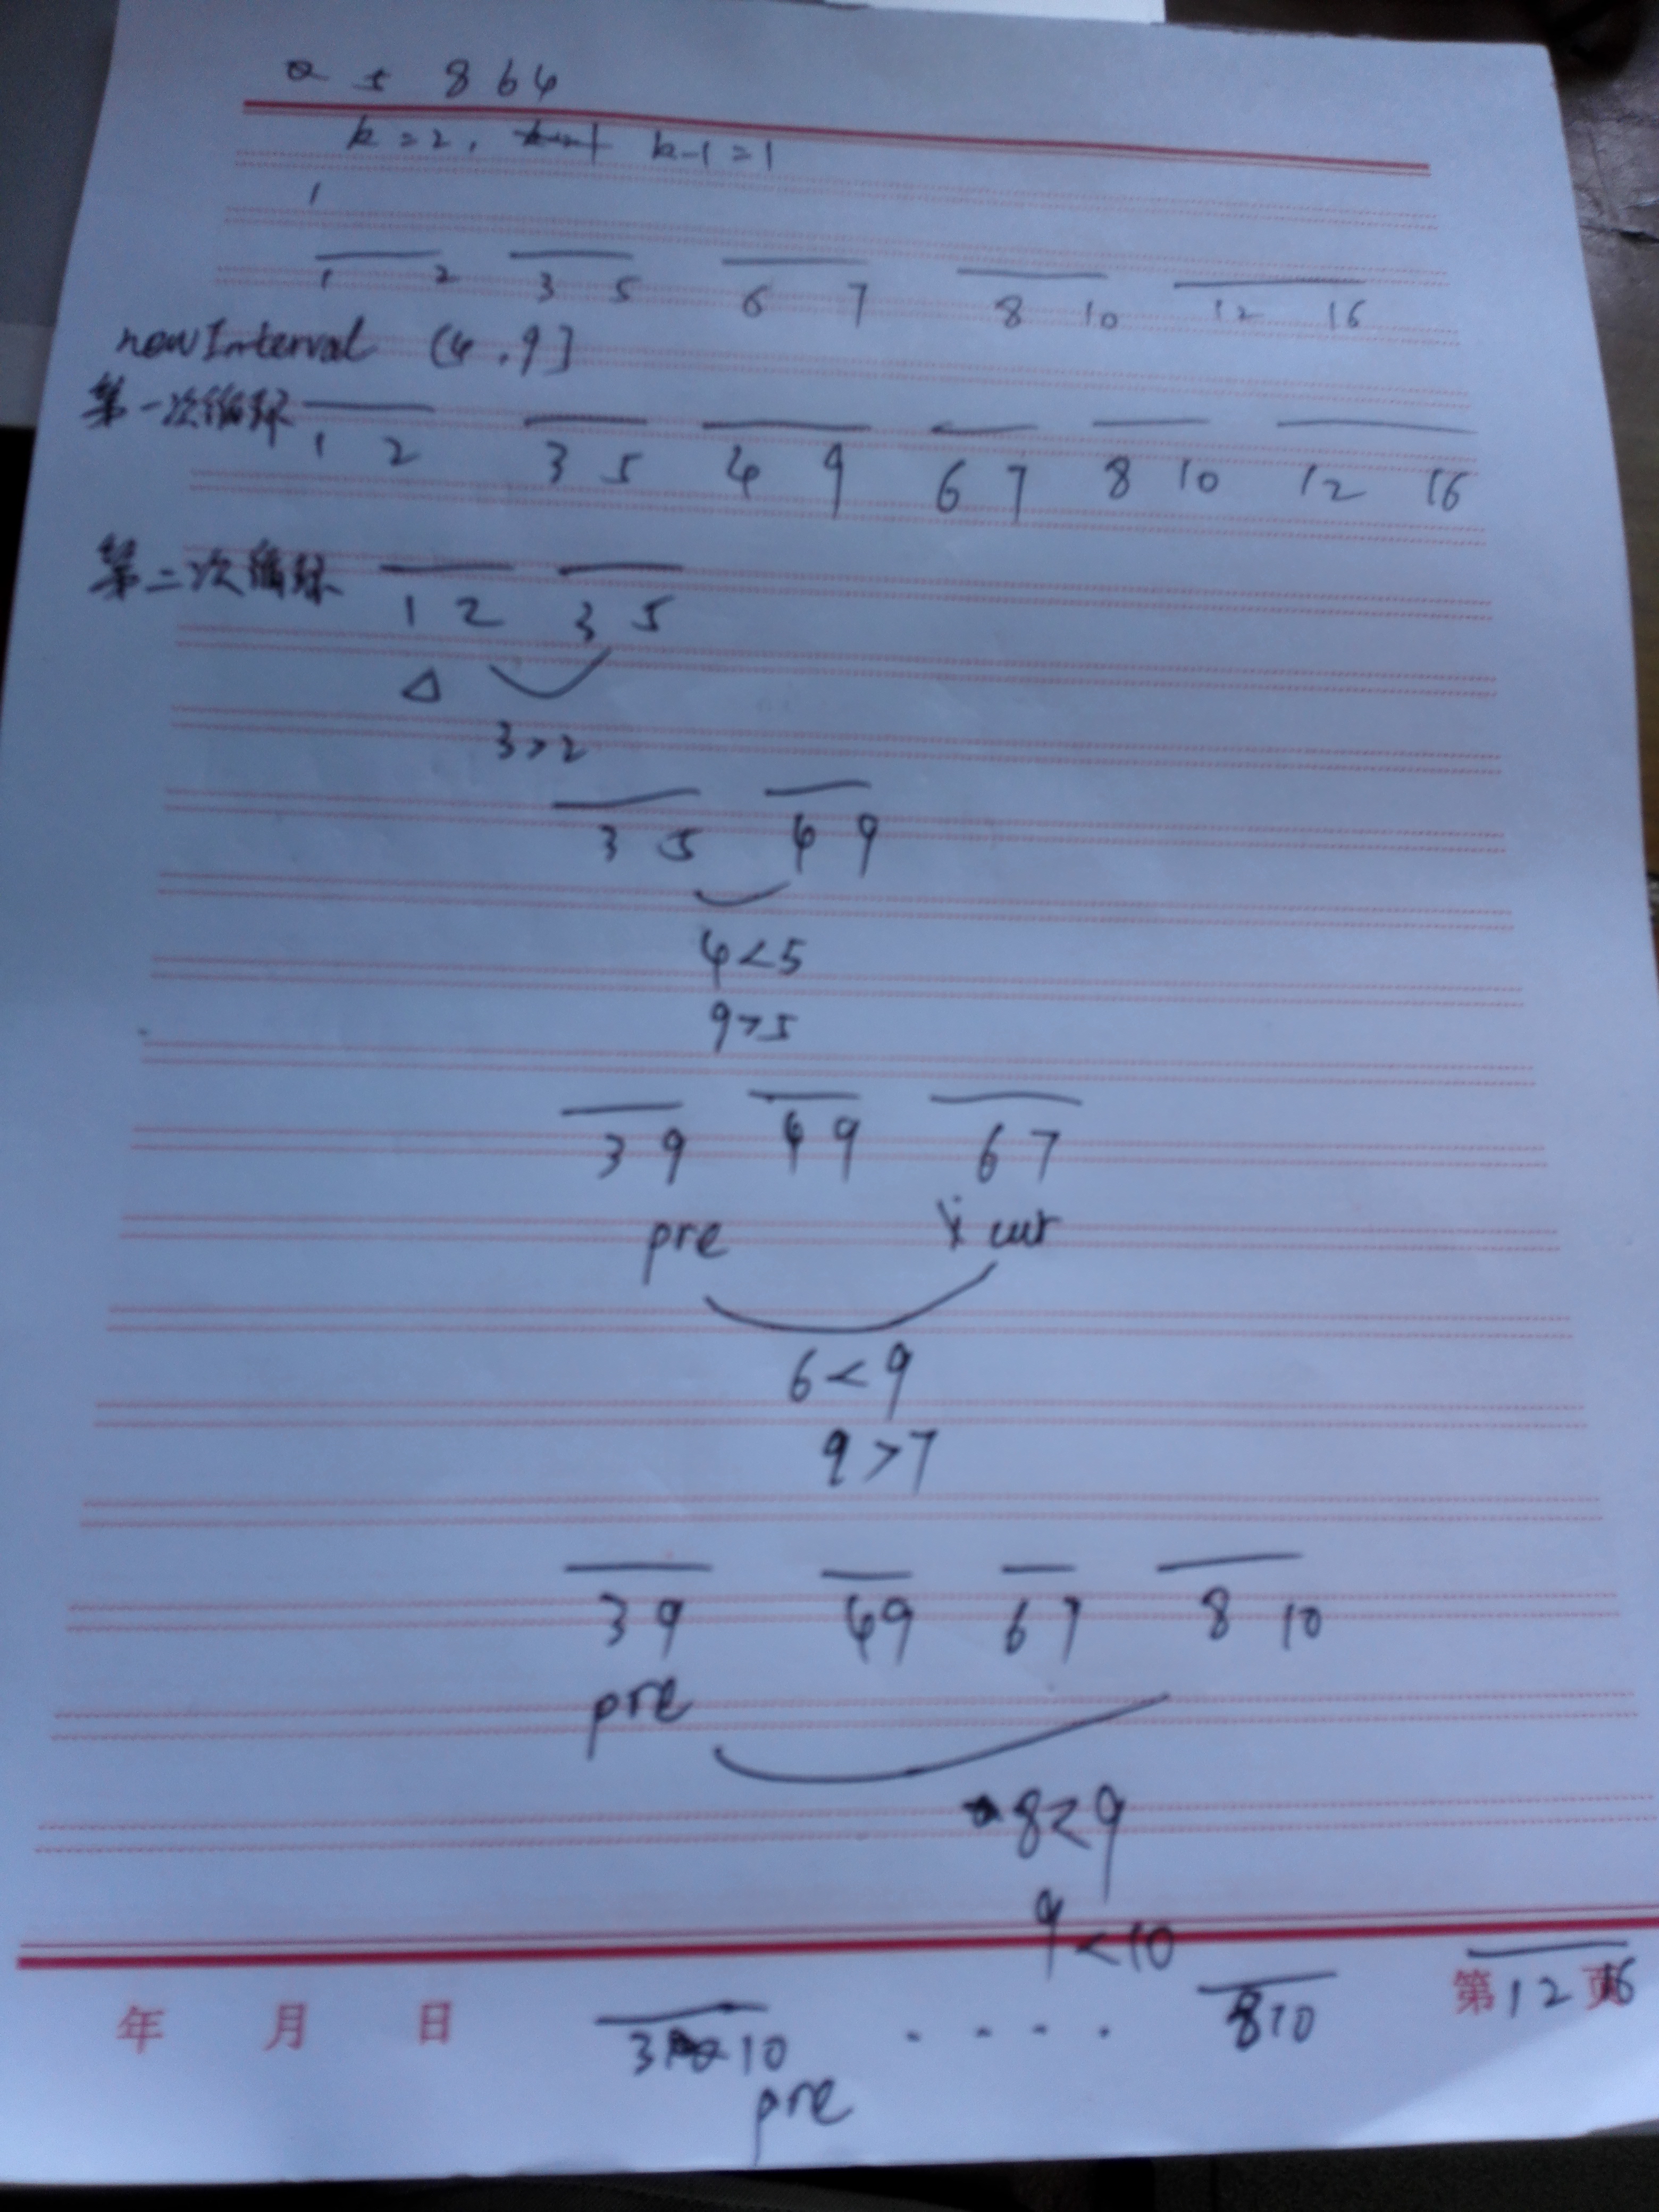 a = 864
k=2, k-1=1
1
1 2 3 5 6 7 8 10 12 16
newInterval (4,9]
第一次循环 1 2 3 5 4 9 6 7 8 10 12 16
第二次循环 1 2 3 5
Δ
3>2
3 5 4 9
4<5
9>5
3 9 4 9 6 7
pre cur
6<9
9>7
3 9 4 9 6 7 8 10
pre
8<9
9<10
年 月 日 3 10 .... 8 10 第 12 页 16
pre